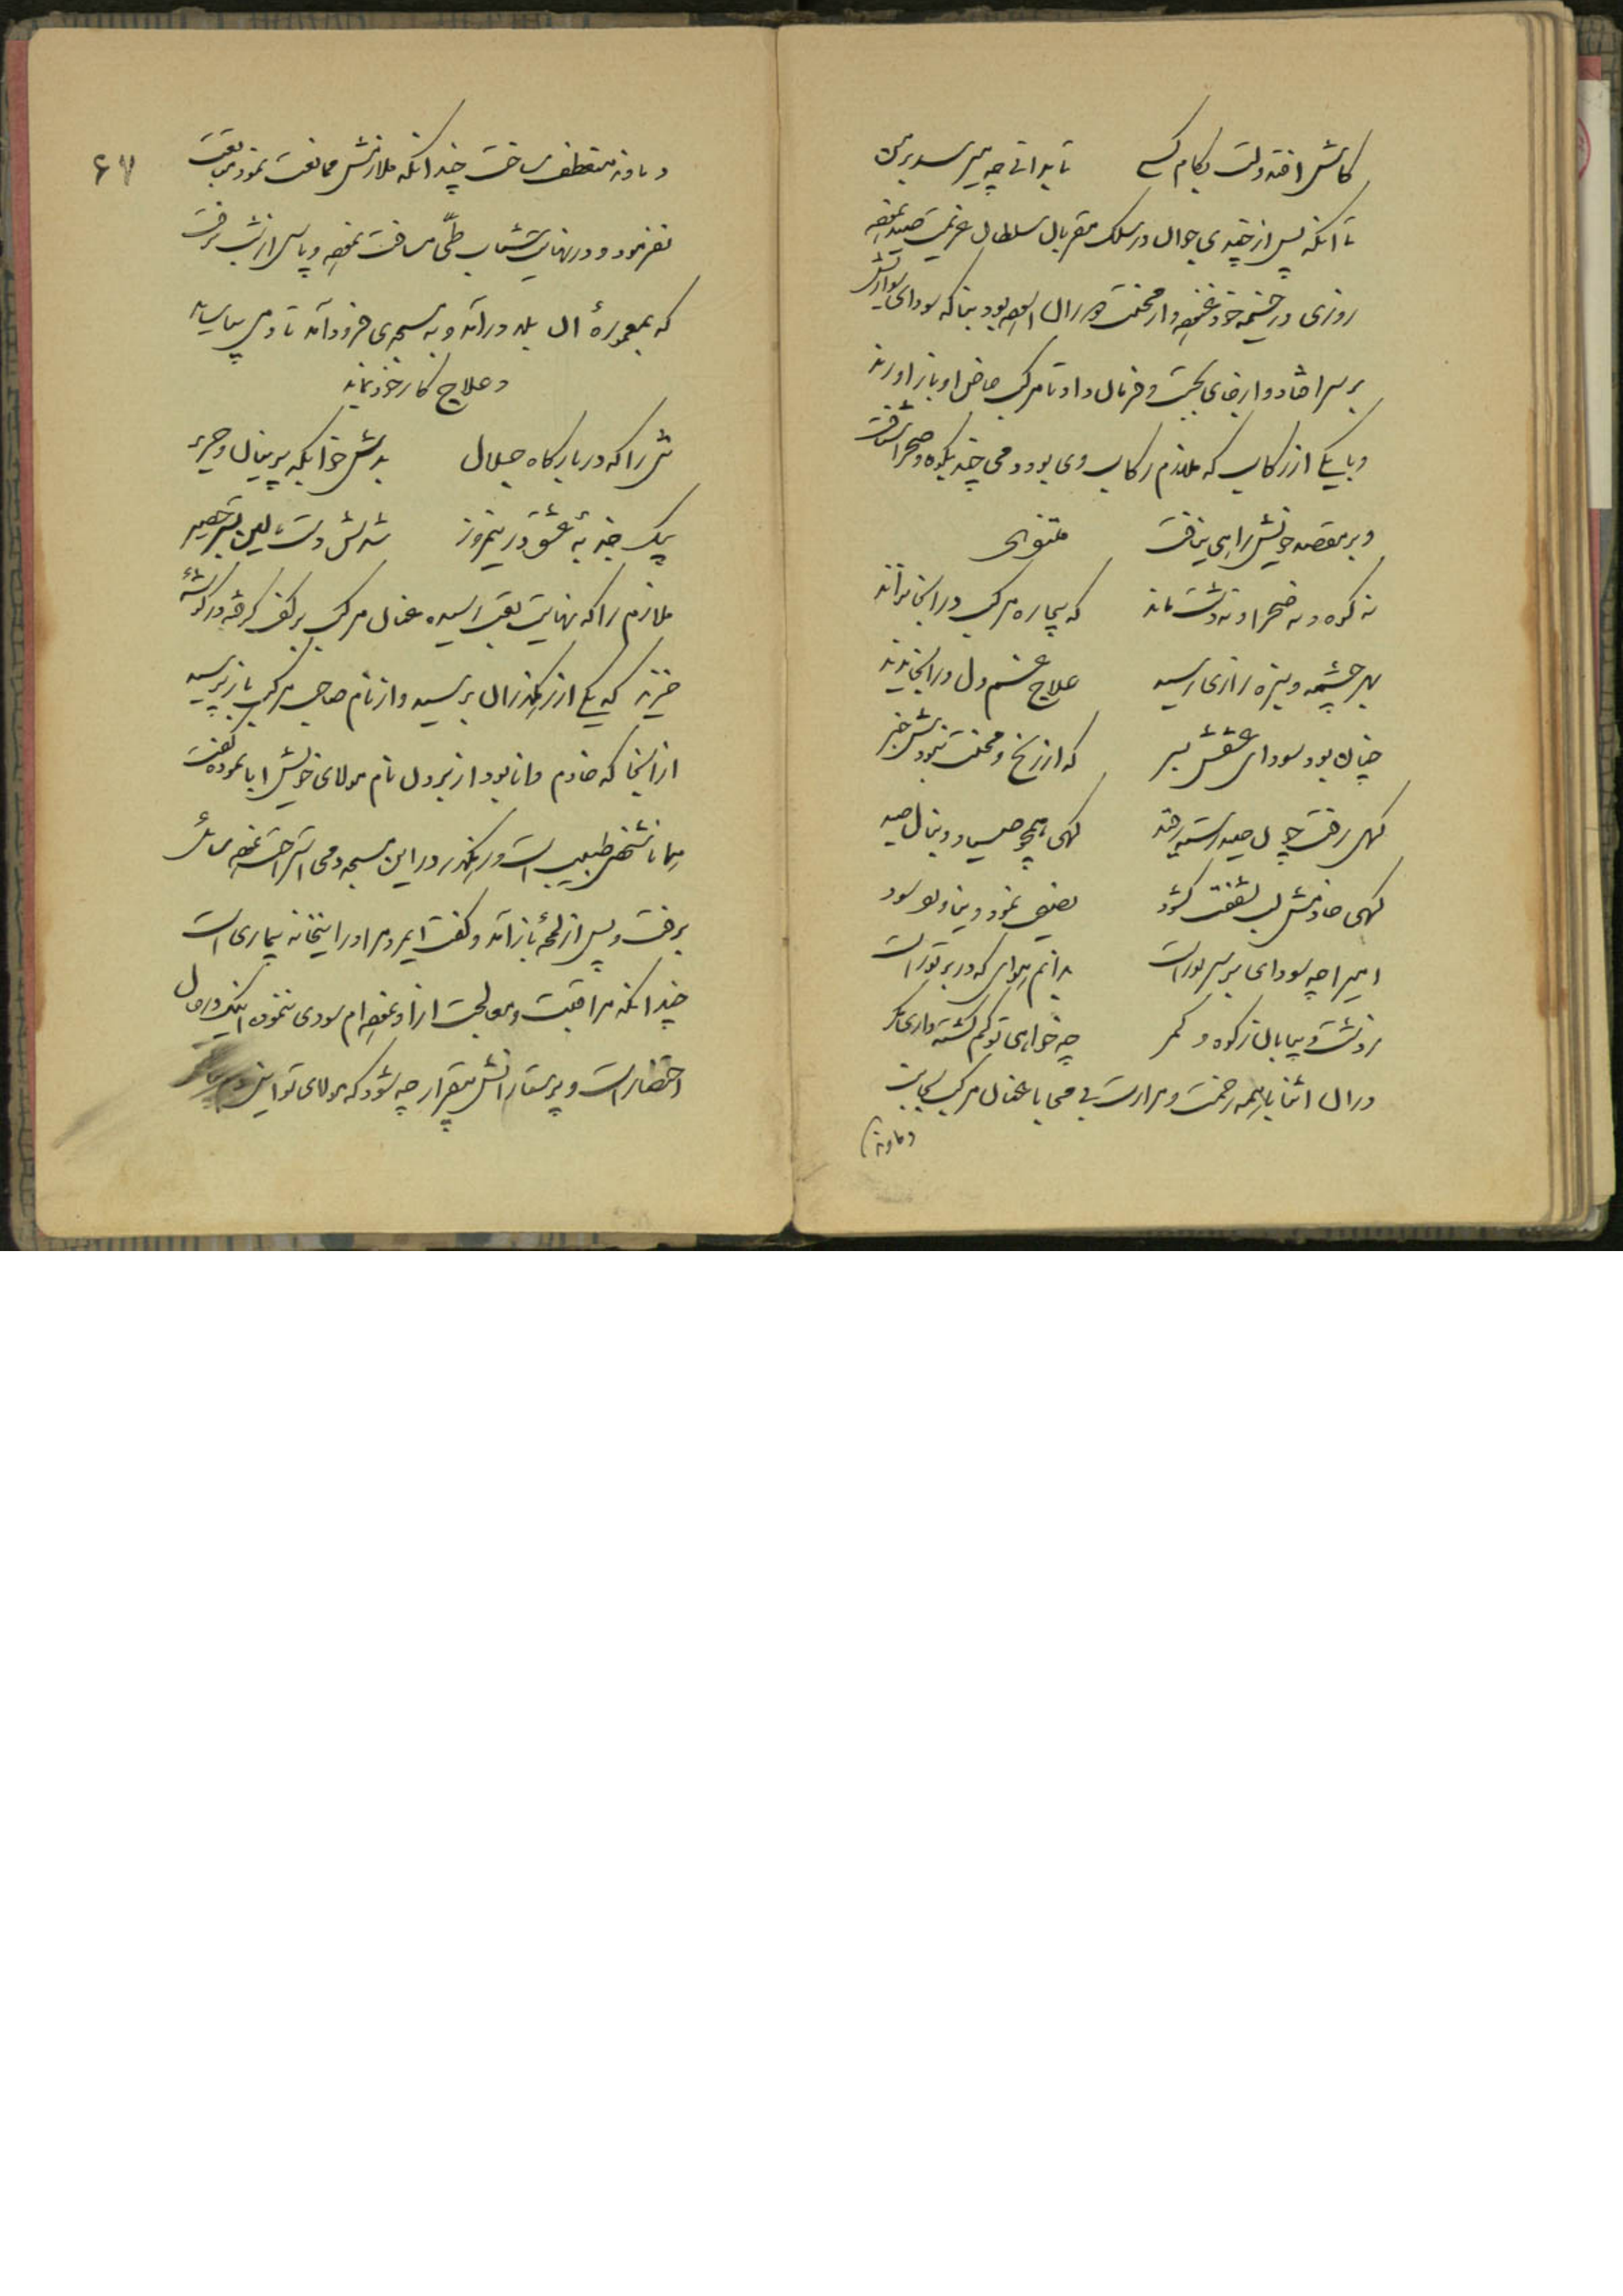 کاش افتد دلت بکام کسی تا بدانی چه میرسد بر من
تا آنکه پس از چندی جوان در سلک مقربان سلطان عزیمت صید نموده
روزی در خیمه خود غنوده و از محنت هجران آسوده بود بناگه سودای
بر سر افتاد و از جای بجست و فرمان داد تا مرکب خاص او باز آورند
و با یکی از رکاب که ملازم رکاب وی بود دمی چند بکوه و صحرا شتافت
و بر مقصد خویش راهی نیافت مثنوی
نه کوه و نه صحرا و نه دشت ماند که بیچاره مرکب در آنجا نراند
بهر چشمه و بیزه زاری رسید علاج غم دل در آنجا ندید
چنان بود سودای عشقش بسر که از رنج و محنت نبودش خبر
گهی رفت چون صید رسته ز قید گهی همچو صیاد دنبال صید
گهی خادمش لب بشفقت گشود نصیحت نمود و
امیرا چه سودای بر سر تو راست ندانم هوای که در بر تو راست
ز دشت و بیابان ز کوه و کمر چه خواهی تو گم گشته داری مگر
در آن اثنا با همه زحمت و مرارت پی می با عنان مرکب بجانب
دماوند
۶۷
دماوند منعطف ساخت چندانکه ملازمش ممانعت نمود
نفرمود و در نهایت شتاب طی مسافت نموده و پاسی از شب برفت
که بمعموره آن بلد درآمد و به مسجدی فرود آمد تا دمی بیاساید
و علاج کار خود نماید
شهی را که در بارگاه جلال بدش خوابگه پرنیان و حریر
یک جذبه عشق در نیمروز شدش دست بالین بستر حصیر
ملازم را که نهایت تعب رسیده عنان مرکب بر کف گرفته در گوشه
خزید که یکی از رهگذران برسید و از نام صاحب مرکب باز پرسید
از آنجا که خادم دانا بود از بردن نام مولای خویش ابا نموده گفت
همانا شخص طبیب است و رهگذر در این مسجد دمی استراحت نموده سائل
برفت و پس از لمحه باز آمد و گفت ایمرد مرا در اینخانه بیماری است
چندانکه مراقبت و معالجت از او نموده ام سودی ننموده اینک در حال
احتضار است و پرستارانش بیقرار چه شود که مولای تو این